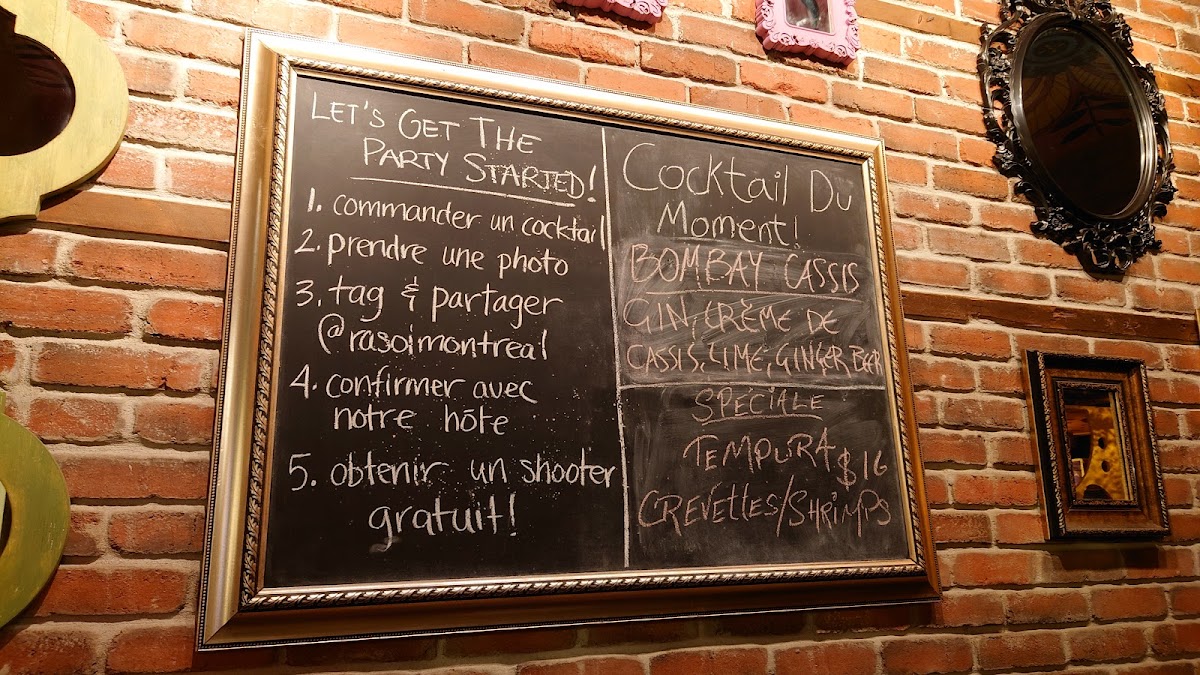 LET'S GET THE
PARTY STARTED!
1. commander un cocktail
2. prendre une photo
3. tag & partager
@rasoimontreal
4. confirmer avec
notre hôte
5. obtenir un shooter
gratuit!
Cocktail Du
Moment!
BOMBAY CASSIS
GIN, CRÈME DE
CASSIS, LIME, GINGER BEER
SPECIALE
TEMPURA $16
CREVETTES/SHRIMPS